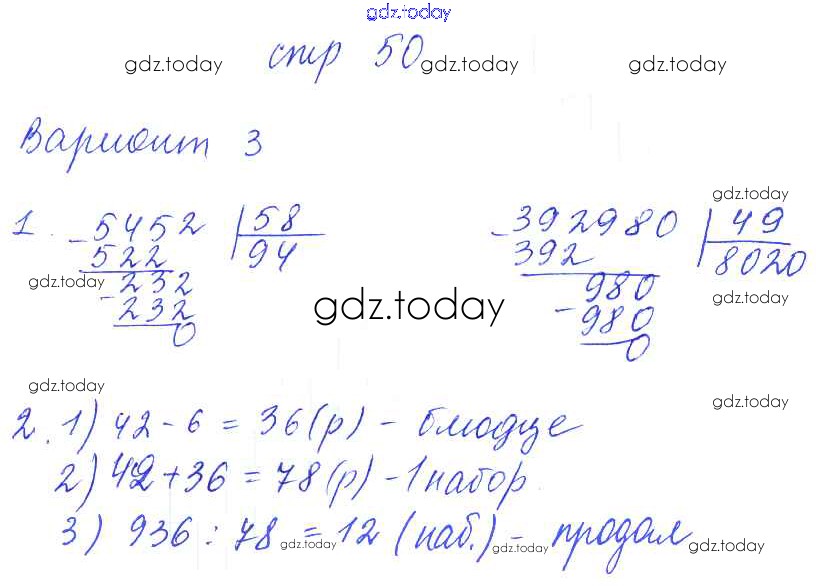 gdz.today
стр 50
gdz.today gdz.today gdz.today
Вариант 3
gdz.today
1. - 5452 | 58 - 392980 | 49
522 94 392 8020
gdz.today - 232 980 gdz.today
232 gdz.today - 980
0 0
gdz.today gdz.today
2. 1) 42 - 6 = 36 (р) - блюдце
2) 42 + 36 = 78 (р) - 1 набор
3) 936 : 78 = 12 (наб.) - продал
gdz.today gdz.today gdz.today